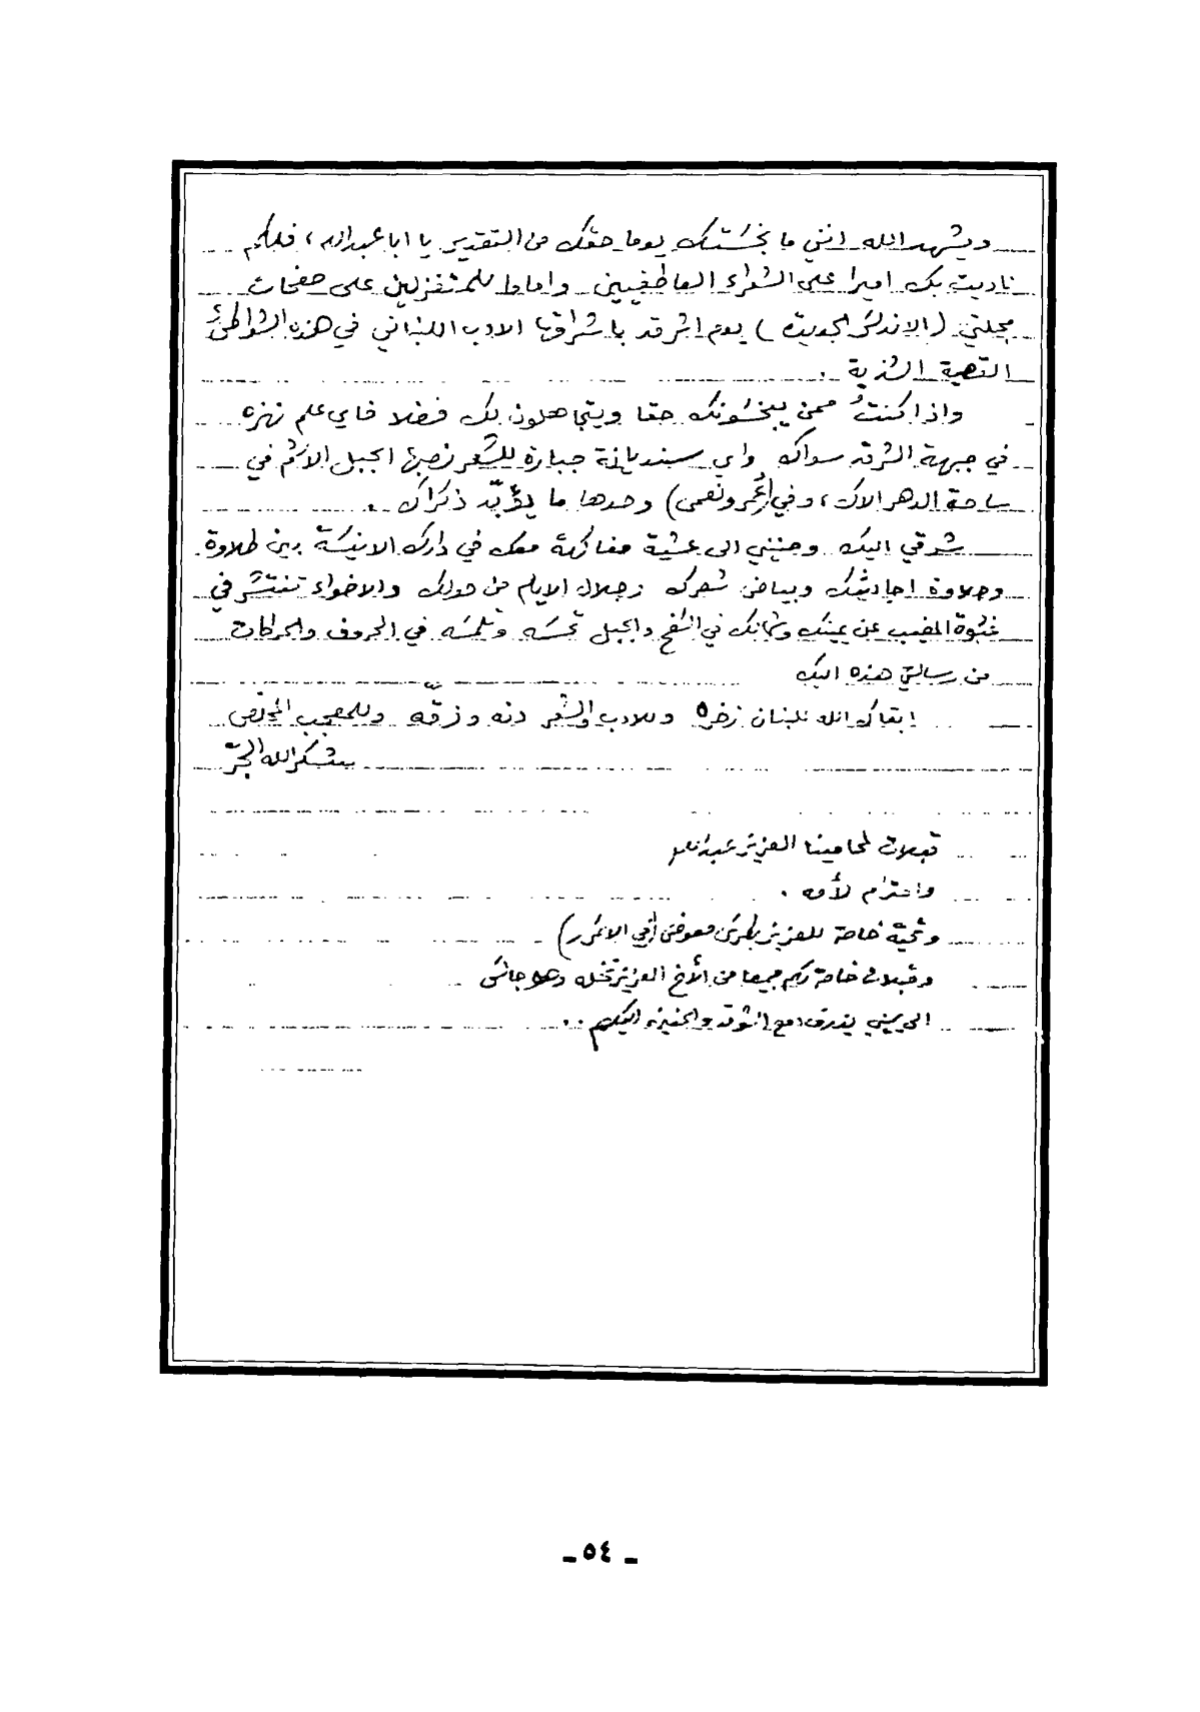 ويشهد الله انني ما بخستك يوما حقك من التقدير يا ابا عبدالله، فلكم
ناديت بك اميرا على الشعراء العاطفيين واماما للمتغزلين على صفحات
مجلتي (الاندلس الجديدة) يوم اشرقت باشراقها الادب اللبناني في هذه الشواطئ
القصية الشذية .
واذا كنتُ ممن يبخسونك حقا ويتجاهلون بك فضلا فاي علم نهزه
في جبهة الشرق سواك واي سنديانة جبارة للشعر نصبها الجبل الاشم في
ساحة الدهر الاك، وفي (عُمر ونعمى) وحدها ما يؤبّد ذكراك .
شوقي اليك وحنيني الى عشية مفاكهة معك في دارك الانيسة بين طلاوة
وحلاوة احاديثك وبياض شعرك وجلال الايام من حولك والاضواء تنتشر في
غشوة المغيب عن يمينك وشمالك في السفح والجبل تحسّه وتلمسه في الحروف والحركات
من رسالتي هذه اليك
ابقاك الله للبنان ذخره وللادب والشعر دنّه وزقّه وللمعجب المخلص
شكرالله الجرّ
قبلات لمحامينا العزيز عبدالله
واحترام لأمه .
وتحية خاصة للعزيز بطرس معوض (في الاغرر)
وقبلات خاصة لكم جميعا من الأخ العزيز نخله وهو جالس
الى يميني يذرف دمع الشوق والحنين اليكم ..
ـ ٥٤ ـ